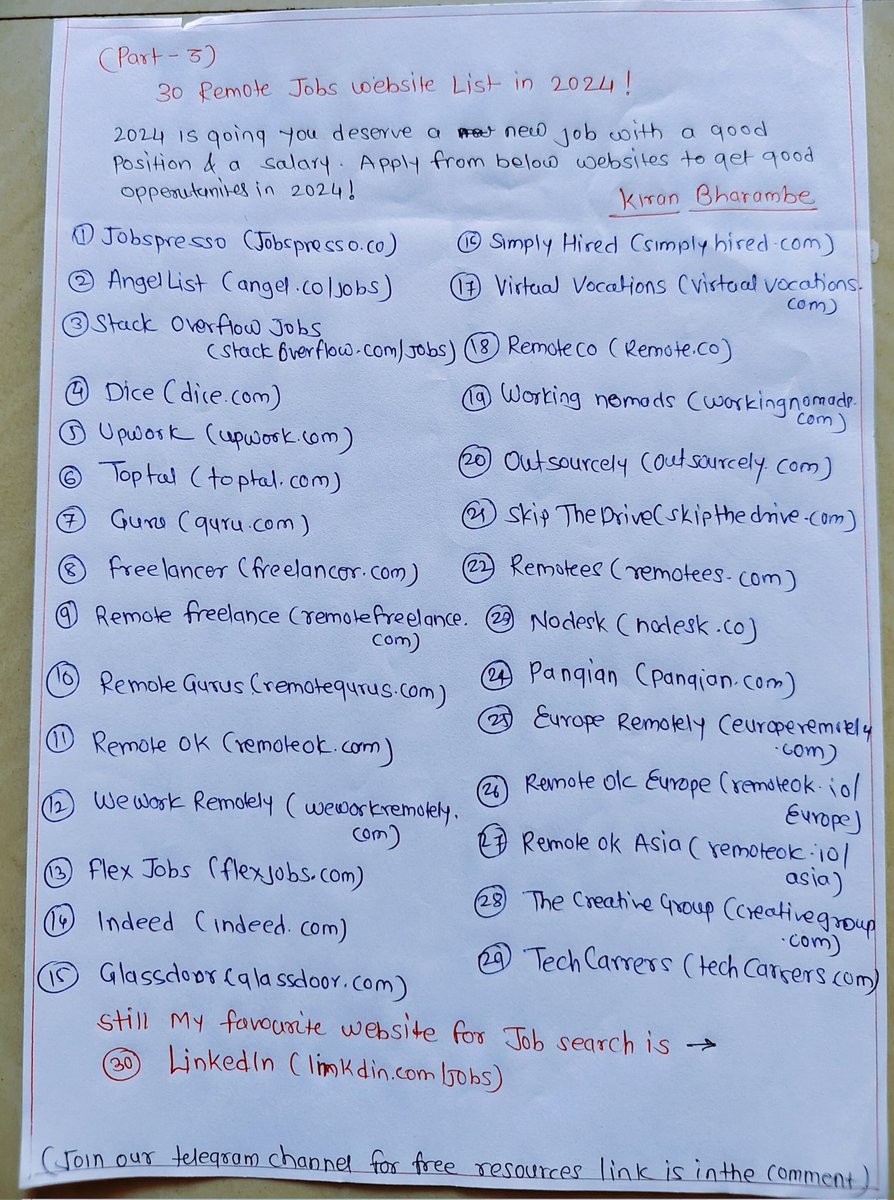 (Part-3)
30 Remote Jobs Website List in 2024!
2024 is going you deserve a new job with a good
position & a salary. Apply from below websites to get good
opperutanites in 2024!
Kiran Bharambe
① Jobspresso (Jobspresso.co)
② AngelList (angel.co/jobs)
③ Stack Overflow Jobs
(stackoverflow.com/jobs)
④ Dice (dice.com)
⑤ Upwork (upwork.com)
⑥ Toptal (toptal.com)
⑦ Guru (guru.com)
⑧ freelancer (freelancor.com)
⑨ Remote freelance (remotefreelance.
com)
⑩ Remote Gurus (remotegurus.com)
⑪ Remote OK (remoteok.com)
⑫ We Work Remotely (weworkremotely.
com)
⑬ flex Jobs (flexjobs.com)
⑭ Indeed (indeed.com)
⑮ Glassdoor (glassdoor.com)
⑯ Simply Hired (simplyhired.com)
⑰ Virtual Vocations (virtual vocations.
com)
⑱ Remoteco (Remote.co)
⑲ Working nomads (workingnomads.
com)
⑳ Outsourcely (outsourcely.com)
㉑ Skip The Drive (skipthedrive.com)
㉒ Remotees (remotees.com)
㉓ Nodesk (nodesk.co)
㉔ Pangian (pangian.com)
㉕ Europe Remotely (europeremotely
.com)
㉖ Remote Ok Europe (remoteok.io/
Europe)
㉗ Remote ok Asia (remoteok.io/
asia)
㉘ The Creative Group (creativegroup
.com)
㉙ TechCarrers (techCarrers.com)
Still My favourite website for Job search is →
㉚ LinkedIn (limkdin.com/jobs)
(Join our telegram channel for free resources link is in the comment)